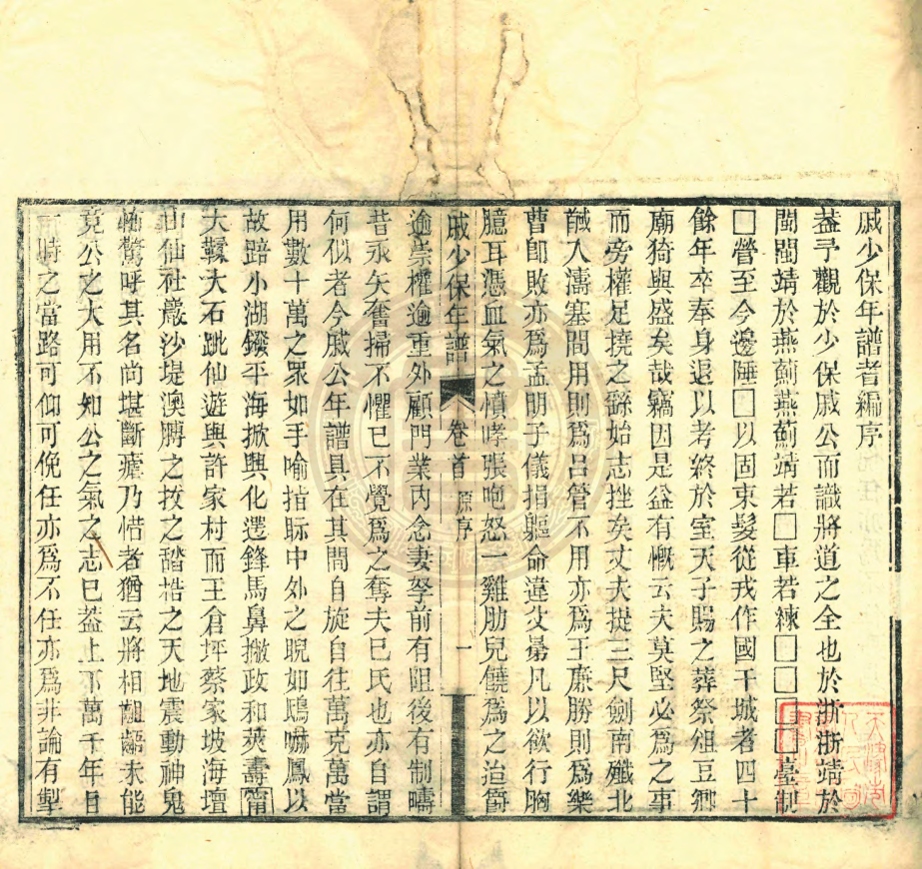 戚少保年譜耆編序
葢予觀於少保戚公而識將道之全也於浙浙靖於
閩閩靖於燕薊燕薊靖若□車若練□□□臺制
□營至今邊陲□以固束髮從戎作國干城者四十
餘年卒奉身退以考終於室天子賜之葬祭俎豆鄉
廟猗與盛矣哉竊因是益有慨云夫莫堅必爲之事
而旁權足撓之繇始志挫矣丈夫提三尺劍南殲北
馘人濤塞間用則爲呂管不用亦爲王廉勝則爲樂
曹卽敗亦爲孟明子儀捐軀命違父暴凡以欲行胸
臆耳憑血氣之憤哮張咆怒一雞肋兒饒爲之迨爵
戚少保年譜 卷首 原序 一
逾崇權逾重外顧門業內念妻孥前有阻後有制疇
昔永矢奮掃不懼已不覺爲之奪夫已氏也亦自謂
何似者今戚公年譜具在其間自旋自往萬克萬當
用數十萬之眾如手喻指眎中外之睨如鴟嚇鳳以
故踣小湖鏺平海掀興化遝鋒馬鼻撇政和莢壽甯
大鞣大石跳仙遊與許家村而王倉坪蔡家坡海壇
山仙社嚴沙堤澳膊之技之諮梏之天地震動神鬼
恟驚呼其名尚堪斷瘧乃惜者猶云將相齟齬未能
竟公之大用不知公之氣之志已葢上下萬千年目
一時之當路可仰可俛任亦爲不任亦爲非論有掣